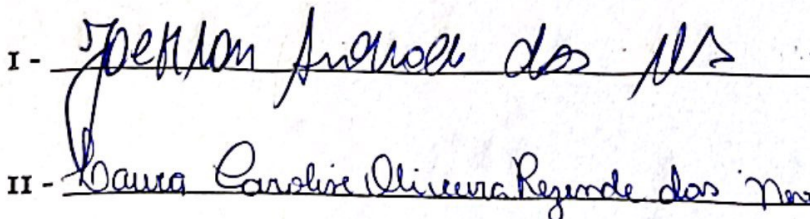 I - Joekson Andrade dos
II - Laura Caroline Oliveira Rezende dos